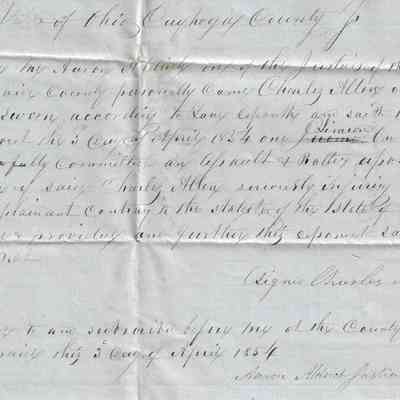 of Ohio Cuyahoga County Js
me Aaron Aldrich one of the Justices of th
County personally Came Charley Allen
sworn according to Law deposeth and saith
the 3d day of April 1854 one Simeon
fully Committed an assault & Battery upon
of said Charley Allen seriously injuring
plainant Contrary to the statute of the State of
providing and further this deponent sa
not
Signed Charles
to and subscribed before me at the County
this 3d day of April 1854
Aaron Aldrich Justice